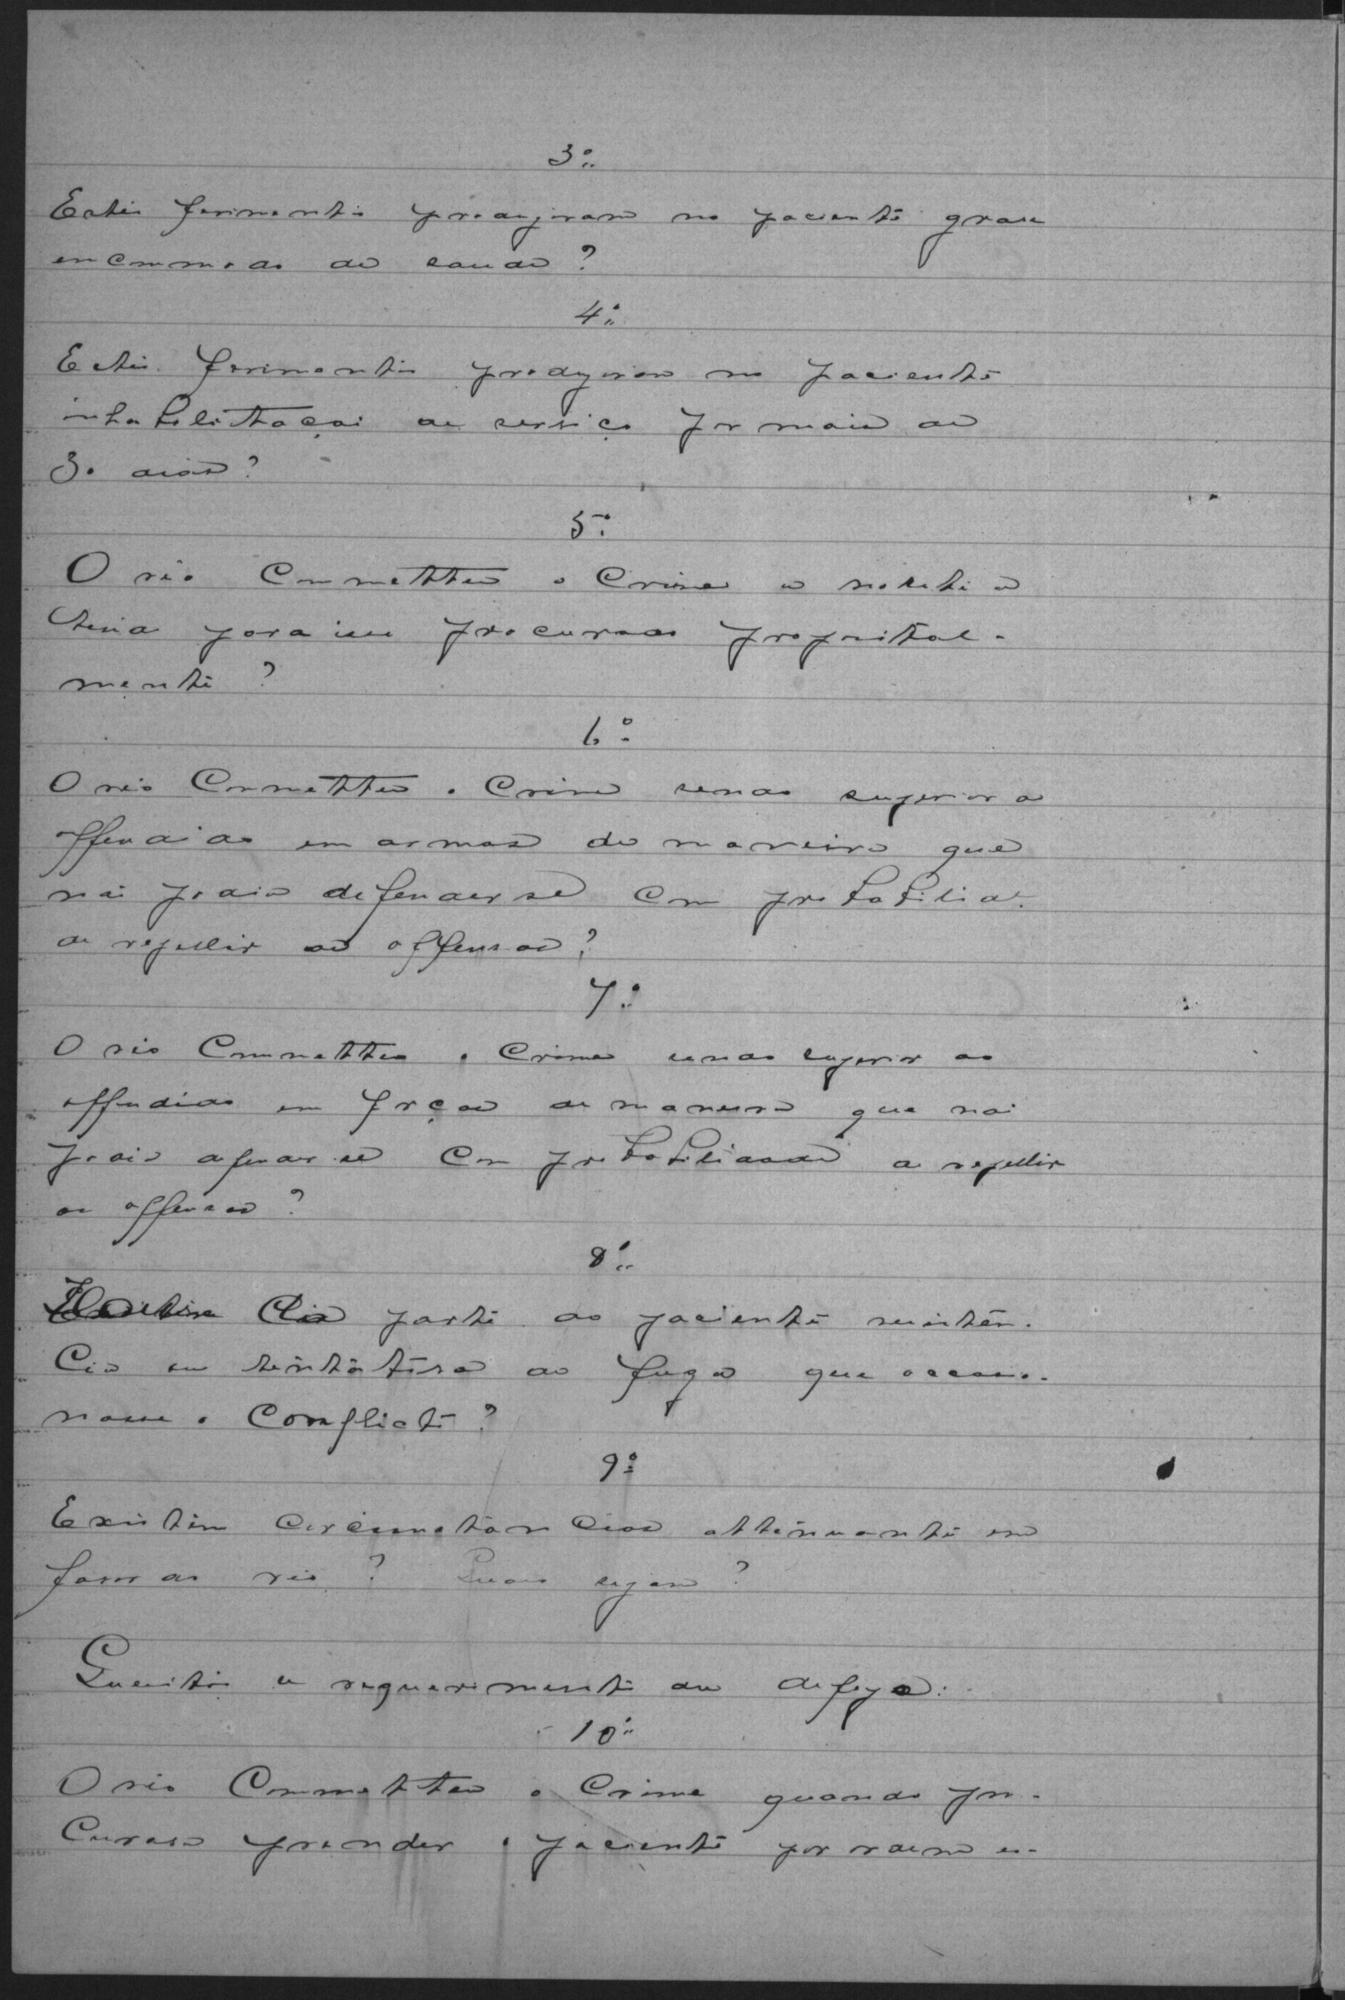 3º
Estes ferimentos produziram no paciente grave
encommodo de saude?
4º
Estes ferimentos produziram no paciente
inhabilitação de serviço por mais de
30 dias?
5º
O réo commetteu o crime a noite e
teria para isso procurado proposital-
mente?
6º
O réo commetteu o crime sendo superior ao
offendido em armas de maneira que
não podia defender se com probabilide
de repellir as offensas?
7º
O réo commetteu o crime sendo superior ao
offendido em forças de maneira que não
podia defender se com probabilidade de repellir
as offensas?
8º
da parte do paciente resistên-
cia ou tentativa de fuga que occasio-
nasse o conflicto?
9º
Existem circumstancias attenuante em
favor do réo? Quaes sejam?
Quesitos a requerimento da defeza:
10º
O réo commetteu o crime quando pro-
curava prender o paciente por ordem es-